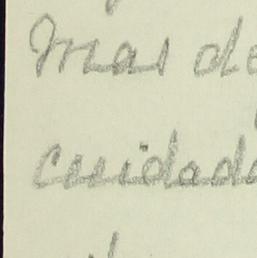 mas de
cuidado